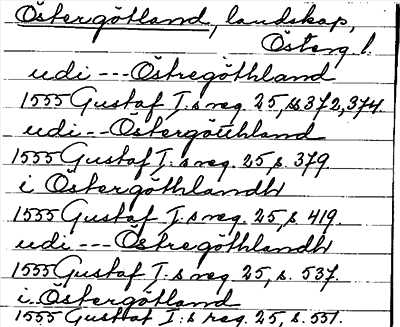 Östergötland, landskap,
Österg. l.
udi --- Östregöthland
1555 Gustaf I:s reg. 25, ss 372, 374.
udi -- Östergöthland
1555 Gustaf I:s reg. 25, s. 379.
i Östergöthlandh
1555 Gustaf I:s reg. 25, s. 419.
udi --- Östregöthlandh
1555 Gustaf I:s reg. 25, s. 537.
i Östergötland
1555 Gustaf I:s reg. 25, s. 551.